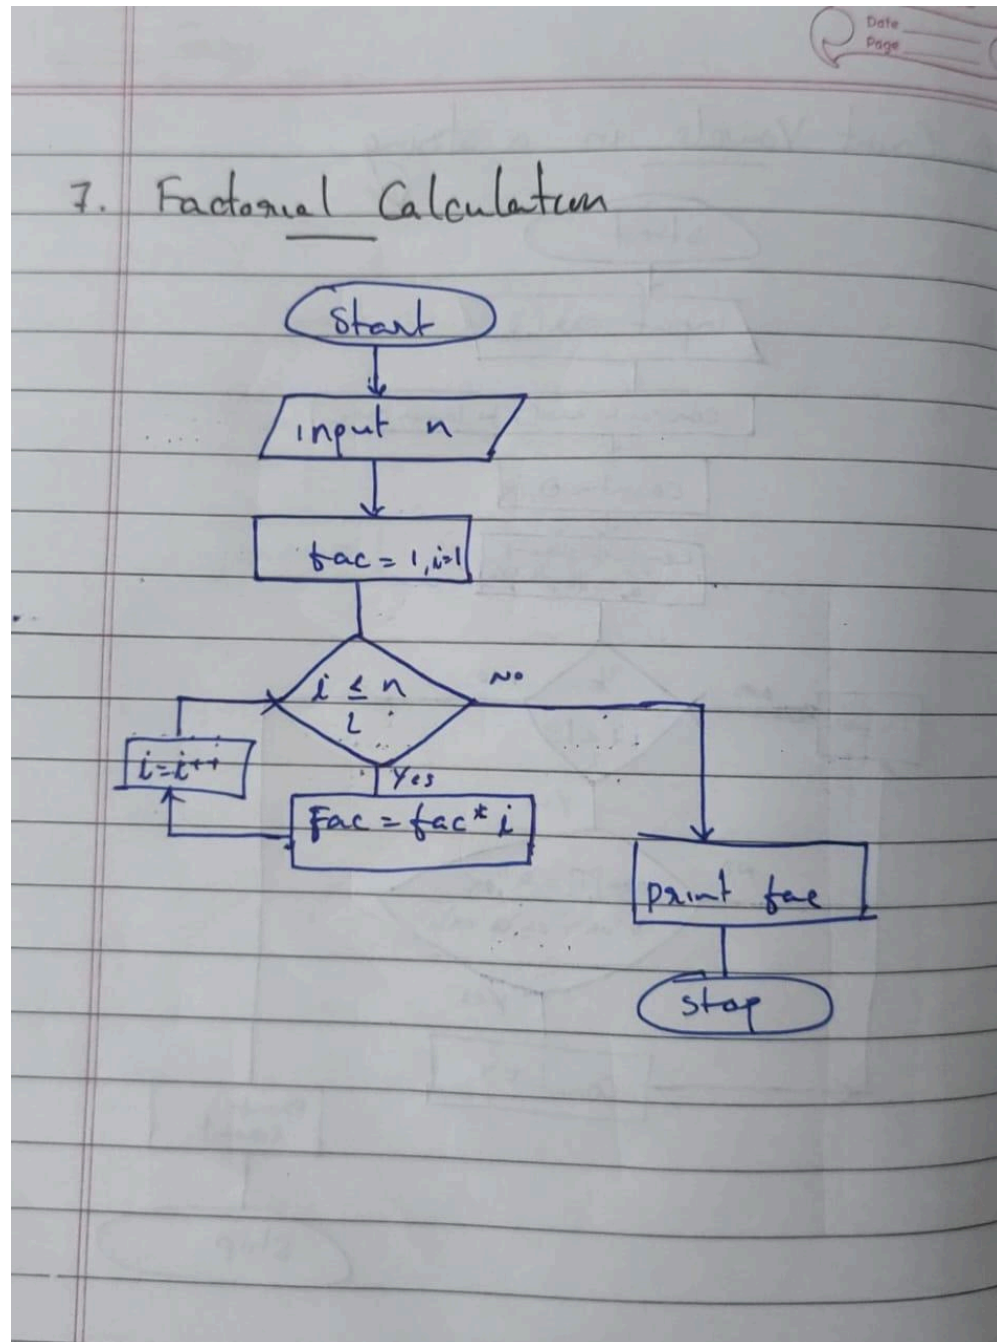 Date
Page
7. Factorial Calculation
Start
input n
fac = 1, i=1
i ≤ n
No
i=i++
Yes
Fac = fac* i
print fac
stop